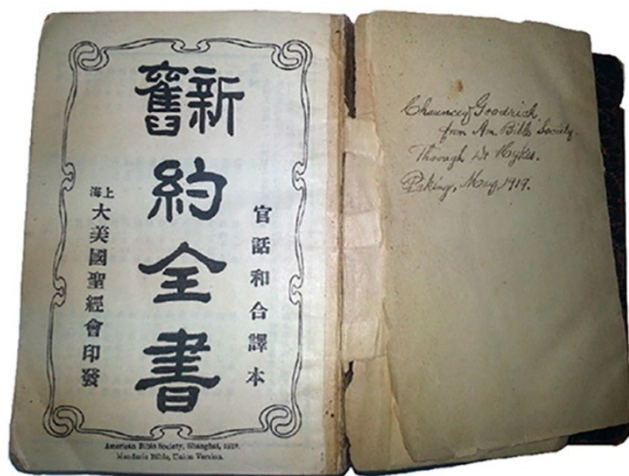 官話和合譯本
新舊約全書
上海大美國聖經會印發
American Bible Society, Shanghai, 1919.
Mandarin Bible, Union Version.
Chauncey Goodrich,
from Am. Bible Society.
Through Dr Hykes.
Peking, 1919.